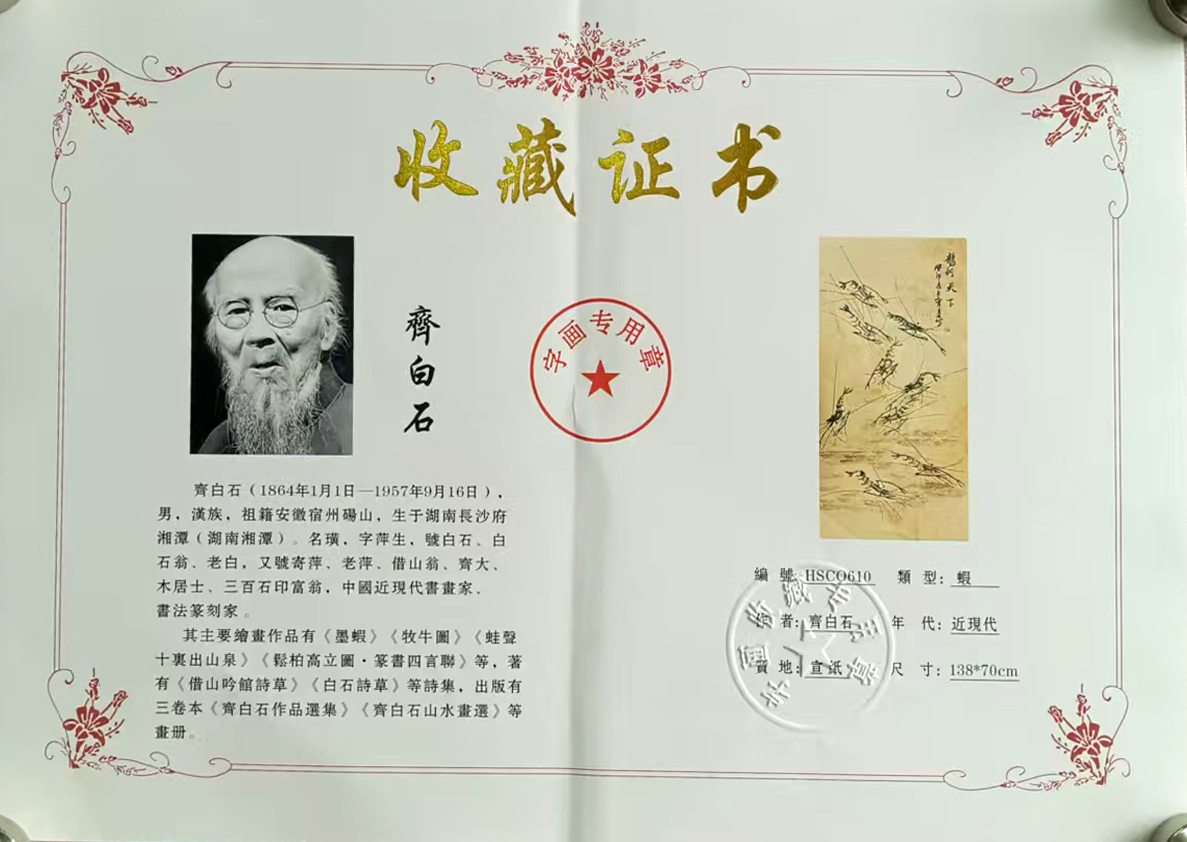 收藏证书
齊白石
字画专用章
龍行天下
齊白石（1864年1月1日—1957年9月16日），
男，漢族，祖籍安徽宿州碭山，生于湖南長沙府
湘潭（湖南湘潭）。名璜，字萍生，號白石、白
石翁、老白，又號寄萍、老萍、借山翁、齊大、
木居士、三百石印富翁，中國近現代書畫家、
書法篆刻家。
其主要繪畫作品有《墨蝦》《牧牛圖》《蛙聲
十裏出山泉》《鬆柏高立圖·篆書四言聯》等，著
有《借山吟館詩草》《白石詩草》等詩集，出版有
三卷本《齊白石作品選集》《齊白石山水畫選》等
畫册。
編 號：HSCO610 類 型：蝦
作 者：齊白石 年 代：近現代
質 地：宣紙 尺 寸：138*70cm